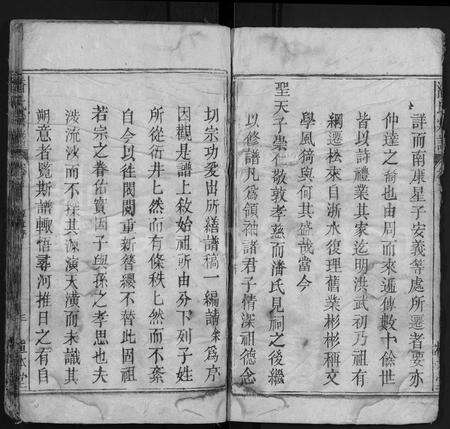 詳而南康星子安義等處所遷者要亦
仲達之裔也由周而來遞傳數十餘世
皆以詩禮業其家迄明洪武初乃祖有
綱遷於來自浙水復理舊業彬彬稱文
學風猗與何其盛哉當今
聖天子崇仁敬敦孝慈而潘氏見祠之後繼
以修譜凡為領袖諸君子情深祖德念
切宗功爰出所繕譜稿一編請來為序
因觀是譜上敘始祖所由分下列子姓
所從衍井井然而有條秩秩然而不紊
自今以往閥閱重新簪纓不替此固祖
若宗之眷佑實因子與孫之孝思也夫
泝流派而不探其源演天潢而未識其
朔意者覽斯譜輒悟尋河推日之有自